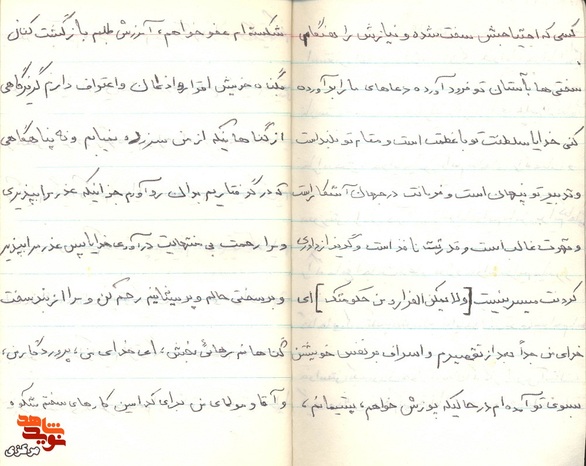 کسی که احتیاجش سخت شده و نیازش را هنگام
سختی ها بآستان تو فرود آورده دعاهای ما را برآورده
کنی خدایا سلطنت تو با عظمت است و مقام تو بلند است
و تدبیر تو پنهان است و فرمانت در جهان آشکار است
و قهرت غالب است و قدرتت نافذ است و گریز از داوری
کردنت میسر نیست [ولایمکن الفرار من حکومتک] ای
خدای من جداً بعد از تقصیرم و اسراف بر نفس خویشتن
بسوی تو آمده ام در حالیکه پوزش خواهم، پشیمانم،
شکسته ام عفو خواهم، آمرزش طلبم بازگشت کنان
بگناه خویش اقرار و اذعان و اعتراف دارم گریزگاهی
از گناهانیکه از من سرزده نیابم و نه پناهگاهی
که در گرفتاریم بدان رو آورم جز اینکه عذر مرا بپذیری
و مرا رحمت بی منتهایت درآوری خدایا پس عذر مرا بپذیر
و بر سختی حالم و پریشانیم رحم کن و مرا از بند سخت
گناهانم رهائی بخش، ای خدای من، پروردگار من،
و آقا و مولای من برای کدامین کارهای سختم شکوه
شاهد
نوید
مرکزی